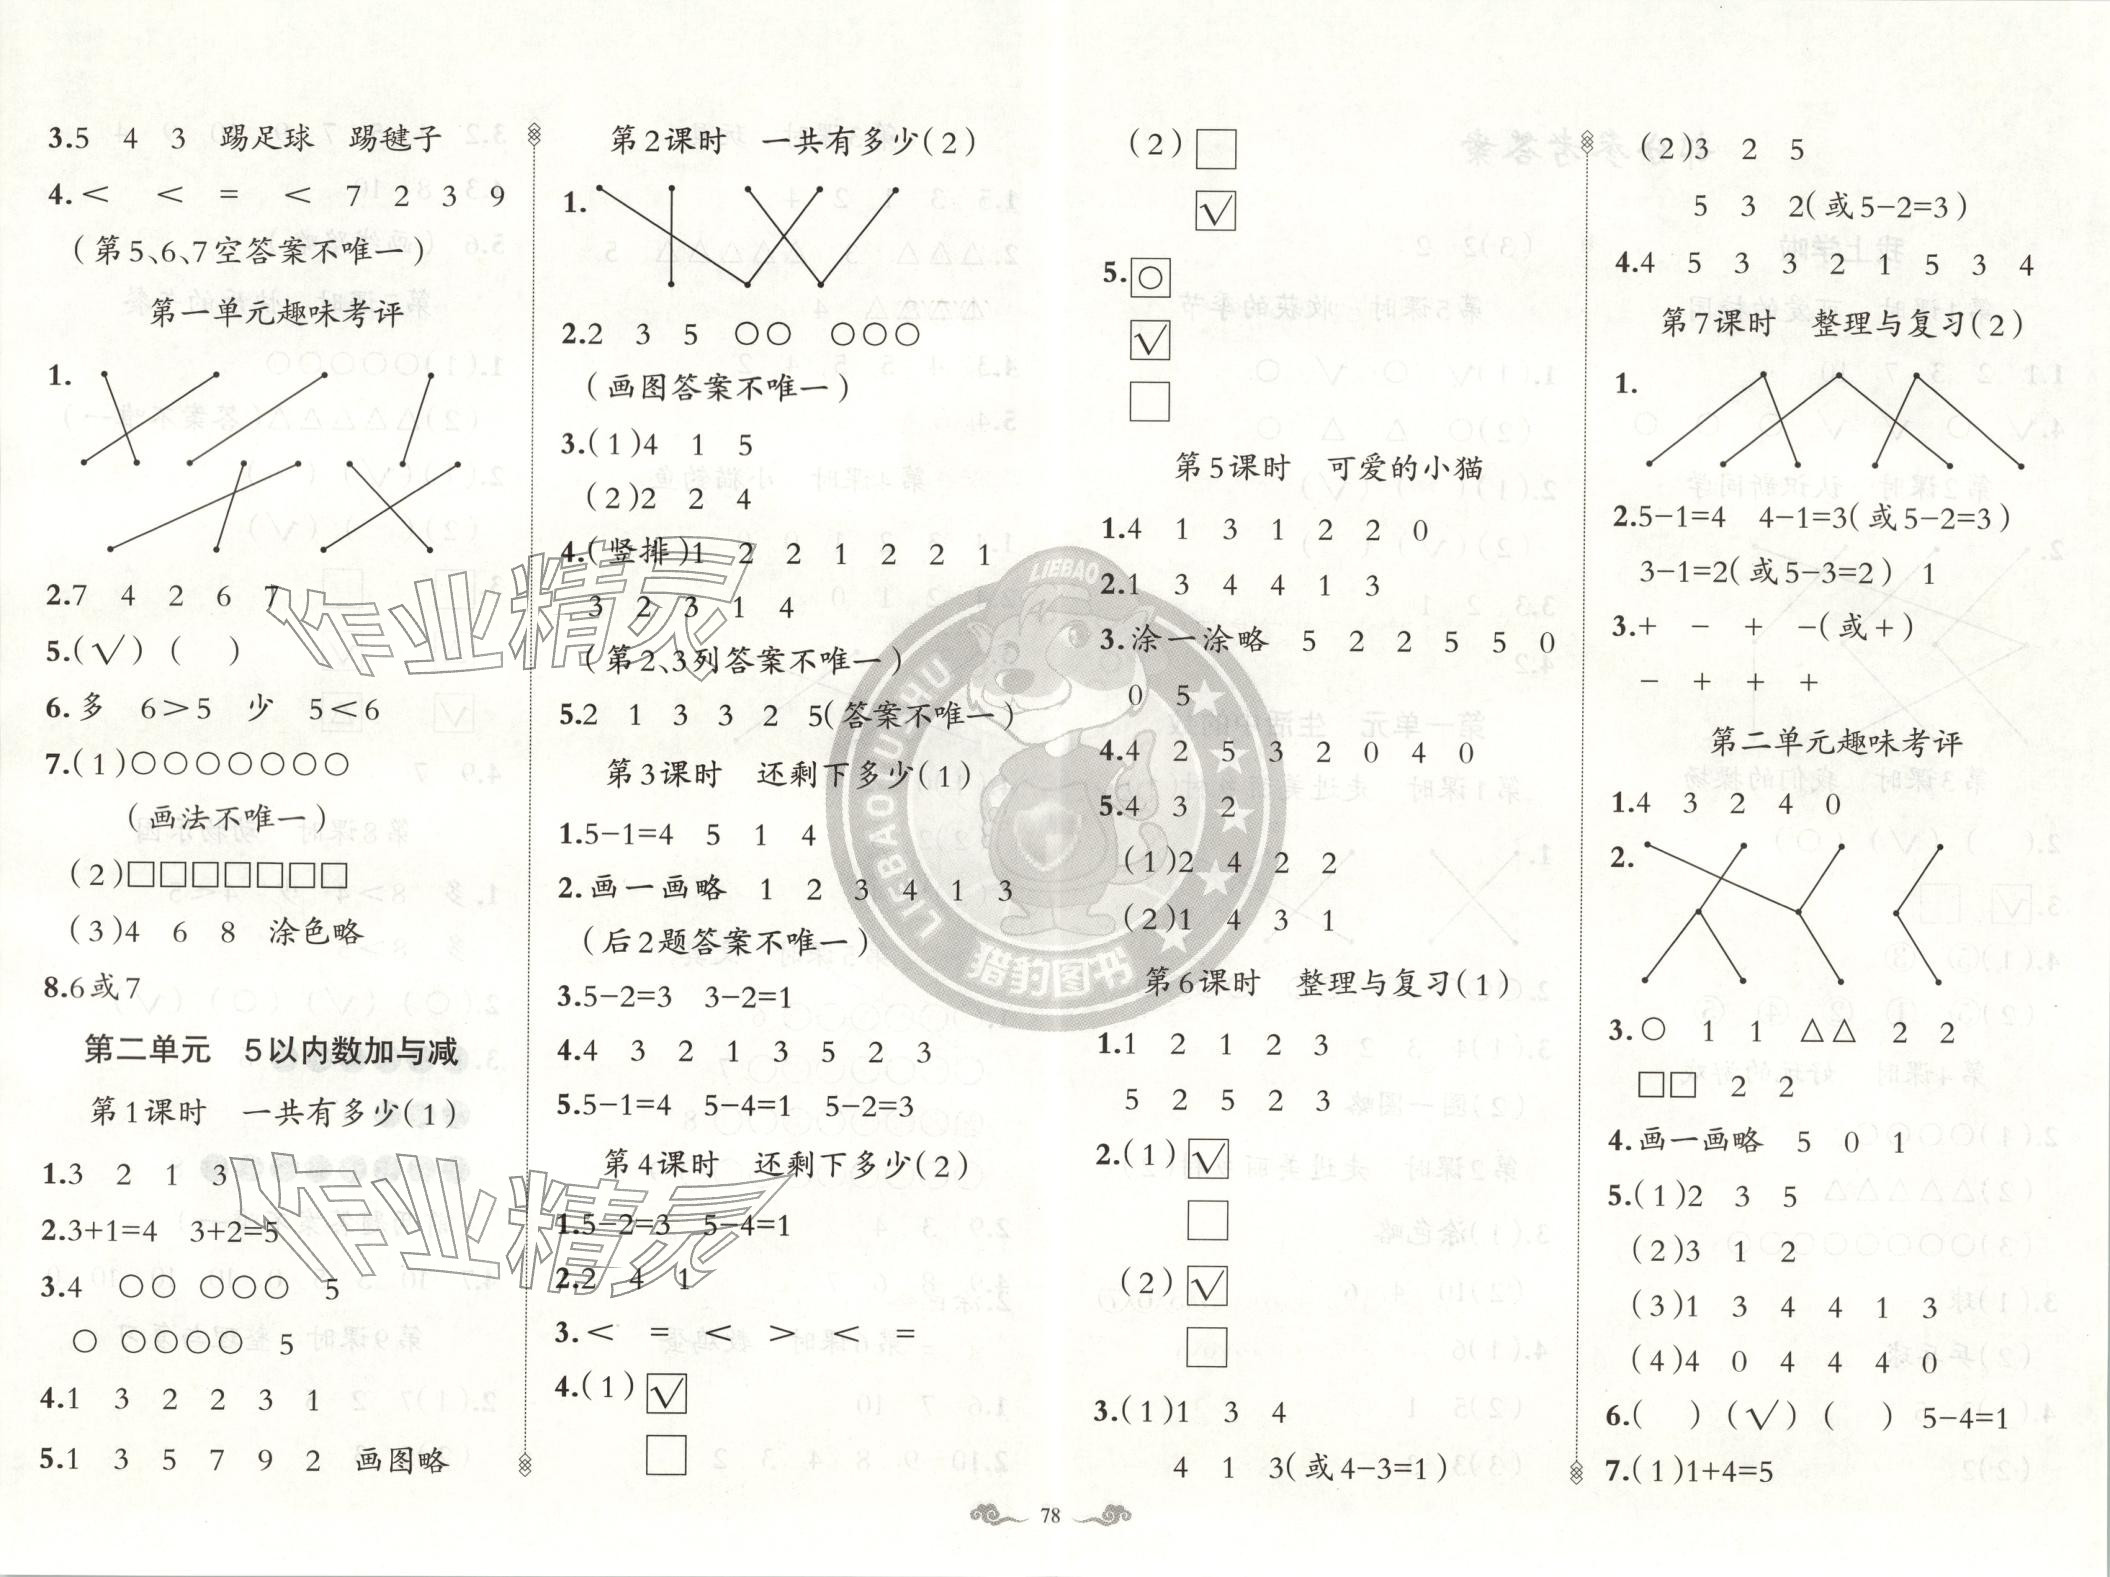 3.5 4 3 踢足球 踢毽子
4.< < = < 7 2 3 9
(第5、6、7空答案不唯一)
第一单元趣味考评
1.
2.7 4 2 6 7
5.(√) ( )
6.多 6>5 少 5<6
7.(1)○○○○○○○
(画法不唯一)
(2)□□□□□□□
(3)4 6 8 涂色略
8.6或7
第二单元 5以内数加与减
第1课时 一共有多少(1)
1.3 2 1 3
2.3+1=4 3+2=5
3.4 ○○ ○○○ 5
○ ○○○○ 5
4.1 3 2 2 3 1
5.1 3 5 7 9 2 画图略
第2课时 一共有多少(2)
1.
2.2 3 5 ○○ ○○○
(画图答案不唯一)
3.(1)4 1 5
(2)2 2 4
4.(竖排)1 2 2 1 2 2 1
3 2 3 1 4
(第2、3列答案不唯一)
5.2 1 3 3 2 5(答案不唯一)
第3课时 还剩下多少(1)
1.5-1=4 5 1 4
2.画一画略 1 2 3 4 1 3
(后2题答案不唯一)
3.5-2=3 3-2=1
4.4 3 2 1 3 5 2 3
5.5-1=4 5-4=1 5-2=3
第4课时 还剩下多少(2)
1.5-2=3 5-4=1
2.2 4 1
3.< = < > < =
4.(1)☑
□
(2)□
☑
5.○
☑
□
第5课时 可爱的小猫
1.4 1 3 1 2 2 0
2.1 3 4 4 1 3
3.涂一涂略 5 2 2 5 5 0
0 5
4.4 2 5 3 2 0 4 0
5.4 3 2
(1)2 4 2 2
(2)1 4 3 1
第6课时 整理与复习(1)
1.1 2 1 2 3
5 2 5 2 3
2.(1)☑
□
(2)☑
□
3.(1)1 3 4
4 1 3(或4-3=1)
(2)3 2 5
5 3 2(或5-2=3)
4.4 5 3 3 2 1 5 3 4
第7课时 整理与复习(2)
1.
2.5-1=4 4-1=3(或5-2=3)
3-1=2(或5-3=2) 1
3.+ - + -(或+)
- + + +
第二单元趣味考评
1.4 3 2 4 0
2.
3.○ 1 1 △△ 2 2
□□ 2 2
4.画一画略 5 0 1
5.(1)2 3 5
(2)3 1 2
(3)1 3 4 4 1 3
(4)4 0 4 4 4 0
6.( ) (√) ( ) 5-4=1
7.(1)1+4=5
78
作业精灵
作业精灵
LIEBAO
LIEBAO TUSHU
猎豹图书